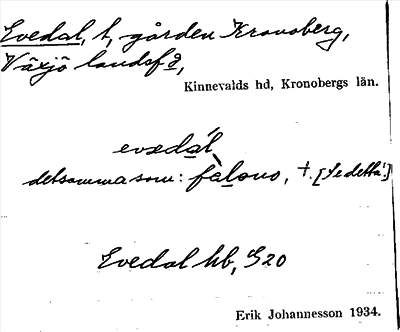 Evedal, t, gården Kronoberg,
Växjö landsf ̲o̲,
Kinnevalds hd, Kronobergs län.
evedál
detsamma som: fàlono, †. [Se detta!]
Evedal hb, S20
Erik Johannesson 1934.